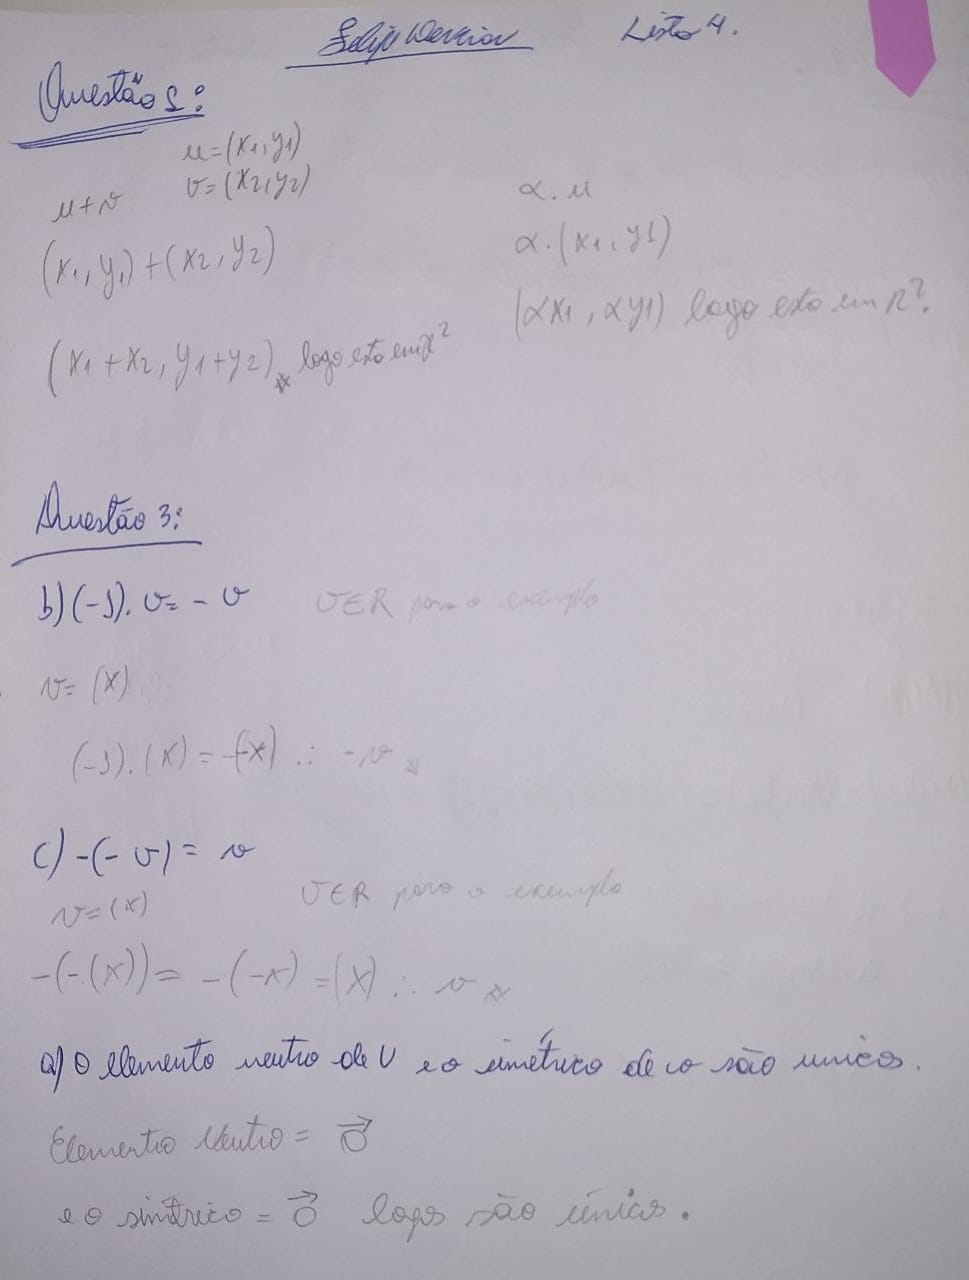 Lista 4.
Questão 1:
u=(x1,y1)
v=(x2,y2)
u+v
(x1,y1)+(x2,y2)
(x1+x2,y1+y2) logo está em R²
α.u
α.(x1,y1)
(αx1,αy1) logo está em R².
Questão 3:
b)(-1).v=-v VER para o exemplo
v=(x)
(-1).(x)=-(x) ∴ -v
c)-(-v)=v
v=(x) VER para o exemplo
-(-(x))=-(-x)=(x) ∴ v
a) O elemento neutro de V e o simétrico de são unicos.
Elemento Neutro = 0⃗
e o simtrico = 0⃗ logo são únicos.